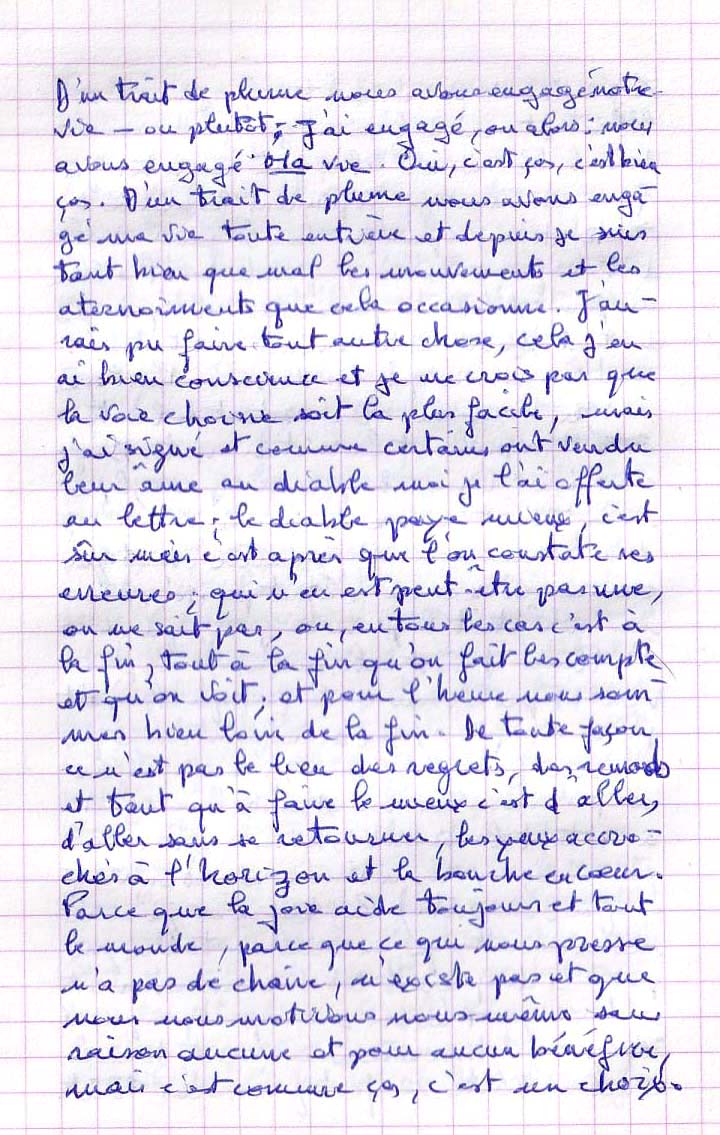 D'un trait de plume nous avons engagé notre
vie – ou plutôt, J'ai engagé, ou alors : nous
avons engagé la vie. Oui, c'est ça, c'est bien
ça. D'un trait de plume nous avons enga
gé ma vie toute entière et depuis je suis
tant bien que mal les mouvements et les
atermoiments que cela occasionne. J'au-
rais pu faire tout autre chose, cela j'en
ai bien conscience et je ne crois pas que
la voie choisie soit la plus facile, mais
j'ai signé et comme certains ont vendu
leur âme au diable moi je l'ai offerte
au lettre ; le diable paye mieux, c'est
sûr mais c'est après que l'on constate ses
erreures ; qui n'en est peut-être pas une,
on ne sait pas, ou, en tous les cas c'est à
la fin, tout à la fin qu'on fait les compte
et qu'on voit ; et pour l'heure nous som
mes bien loin de la fin. De toute façon
ce n'est pas le lieu des regrets, des remords
et tant qu'à faire le mieux c'est d'aller,
d'aller sans se retourner, les yeux accro-
chés à l'horizon et la bouche en cœur.
Parce que la joie aide toujours et tout
le monde, parce que ce qui nous presse
n'a pas de chaire, n'existe pas et que
nous nous motivons nous-même sans
raison aucune et pour aucun bénéfice,
mais c'est comme ça, c'est un choix.